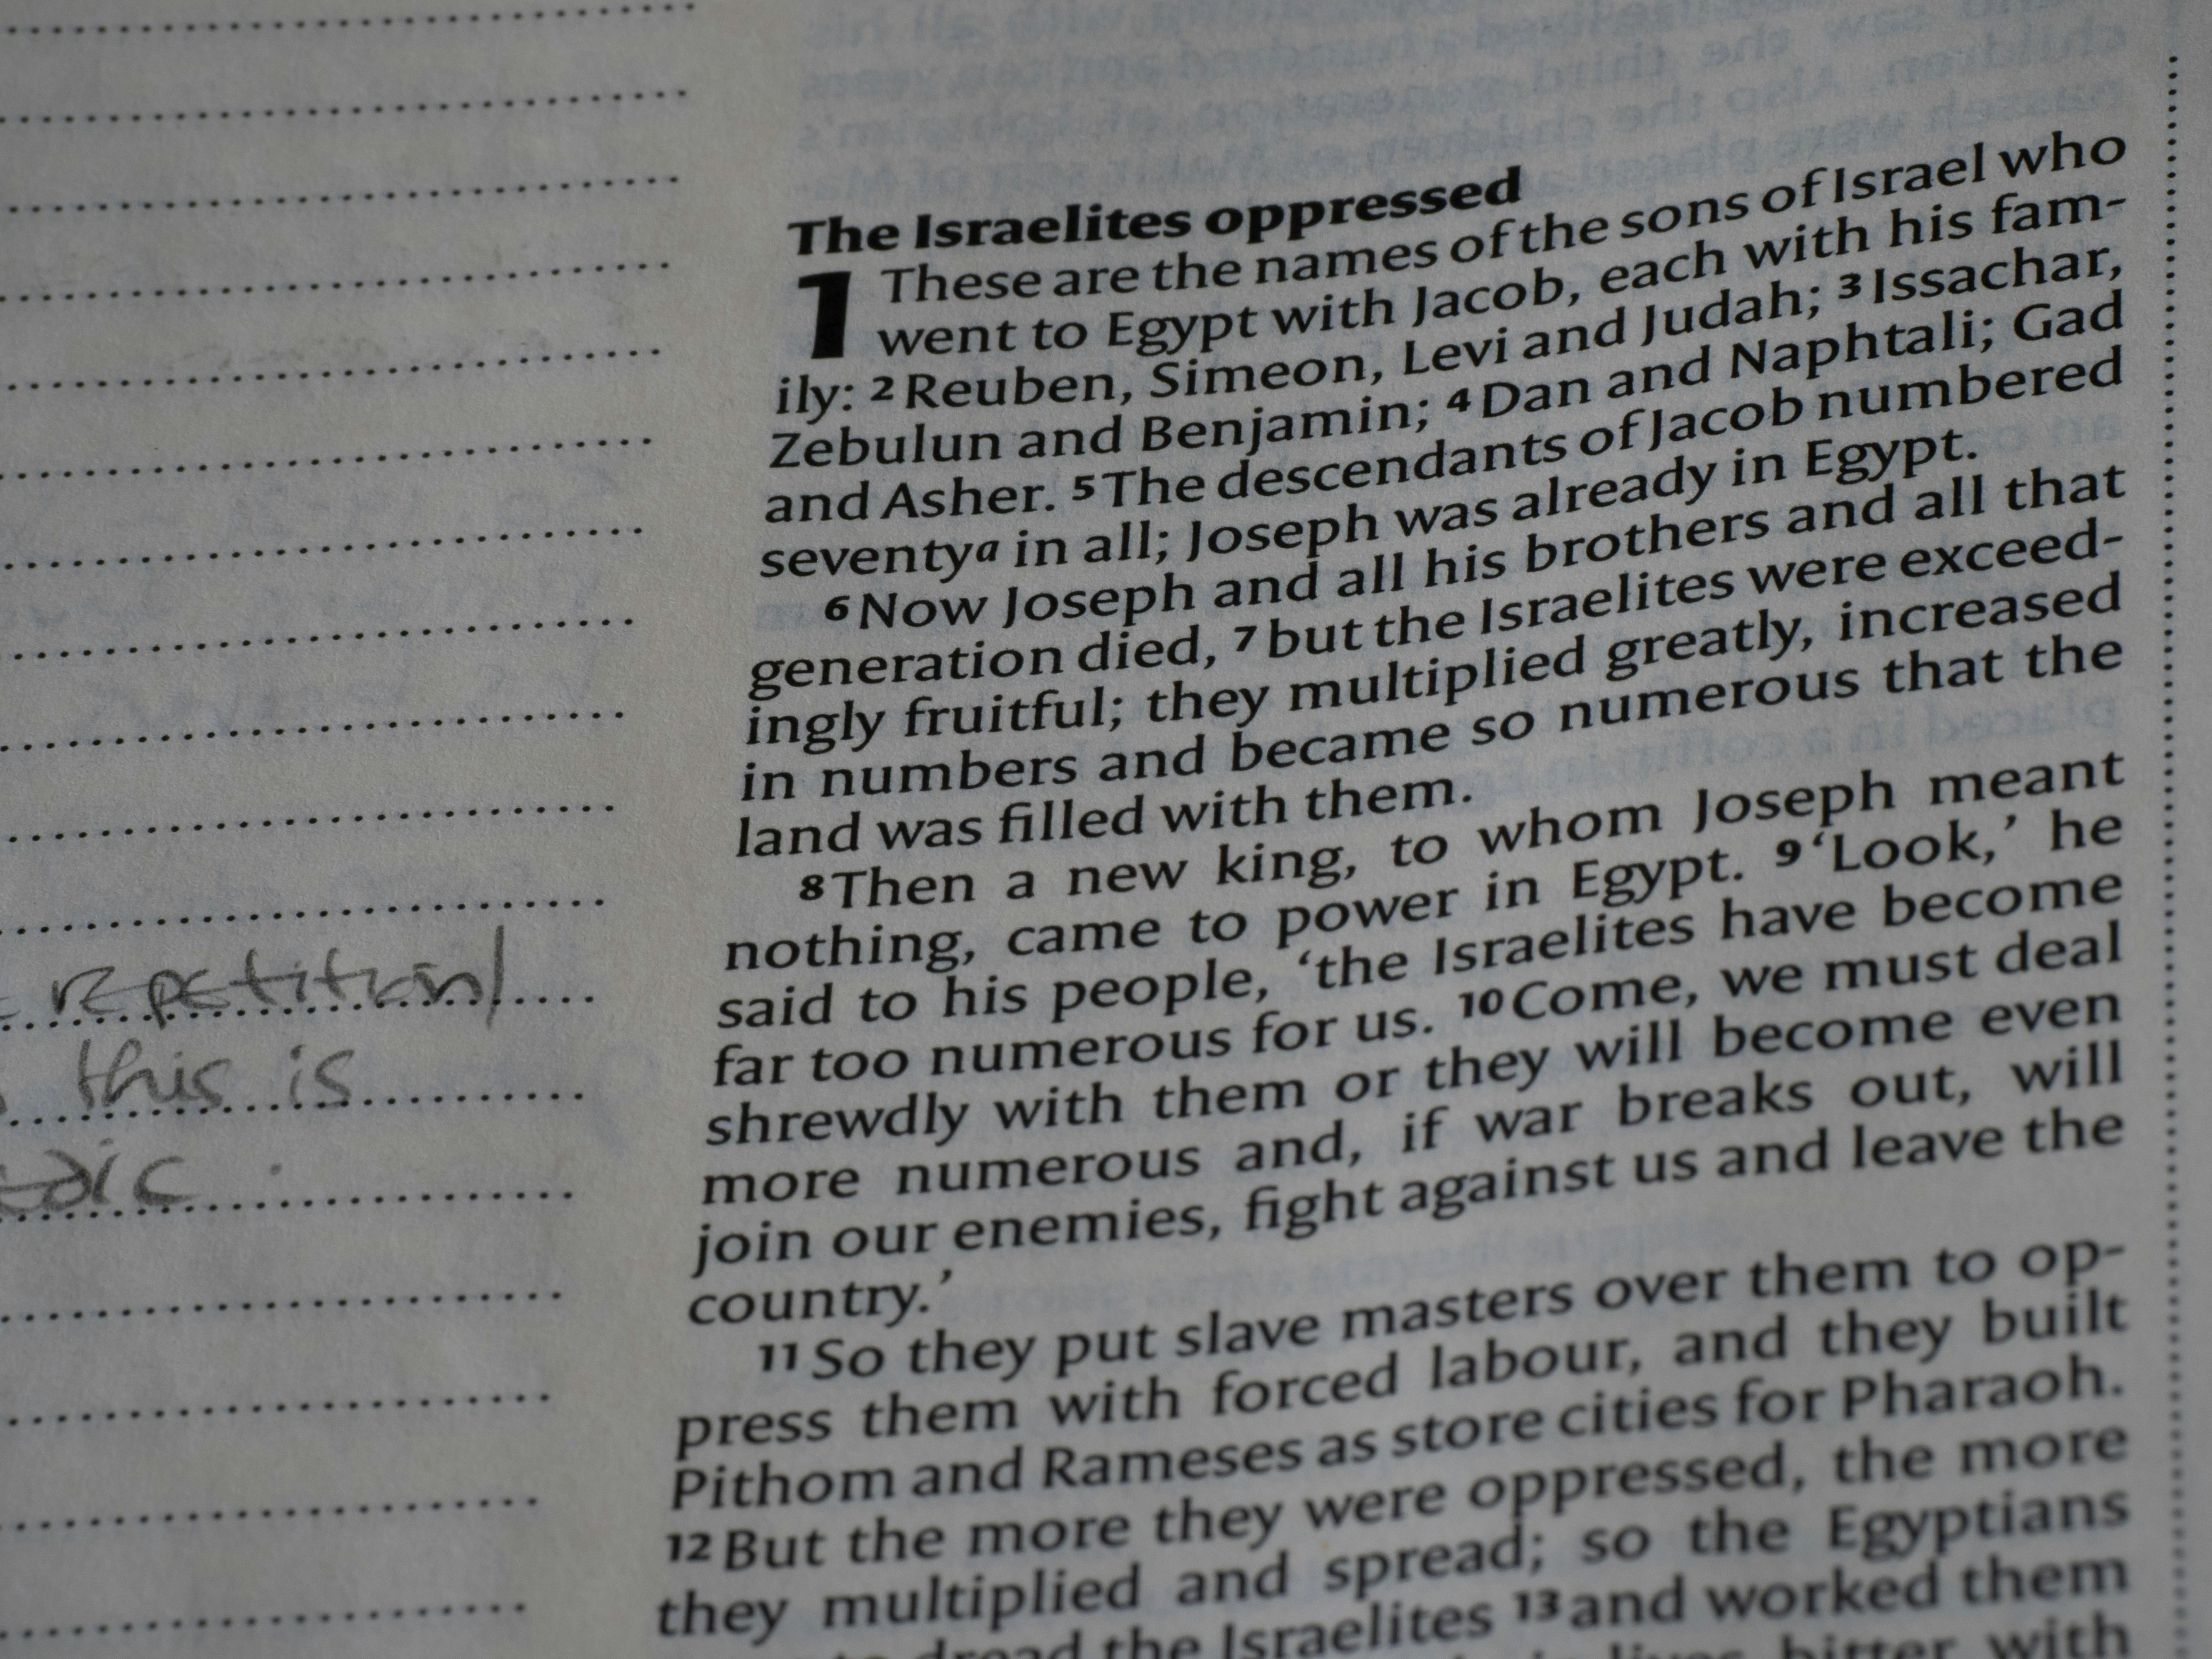 The Israelites oppressed
1 These are the names of the sons of Israel who
went to Egypt with Jacob, each with his fam-
ily: 2 Reuben, Simeon, Levi and Judah; 3 Issachar,
Zebulun and Benjamin; 4 Dan and Naphtali; Gad
and Asher. 5 The descendants of Jacob numbered
seventya in all; Joseph was already in Egypt.
6 Now Joseph and all his brothers and all that
generation died, 7 but the Israelites were exceed-
ingly fruitful; they multiplied greatly, increased
in numbers and became so numerous that the
land was filled with them.
8 Then a new king, to whom Joseph meant
nothing, came to power in Egypt. 9 ‘Look,’ he
said to his people, ‘the Israelites have become
far too numerous for us. 10 Come, we must deal
shrewdly with them or they will become even
more numerous and, if war breaks out, will
join our enemies, fight against us and leave the
country.’
11 So they put slave masters over them to op-
press them with forced labour, and they built
Pithom and Rameses as store cities for Pharaoh.
12 But the more they were oppressed, the more
they multiplied and spread; so the Egyptians
to dread the Israelites 13 and worked them
lives bitter with
repetition
this is